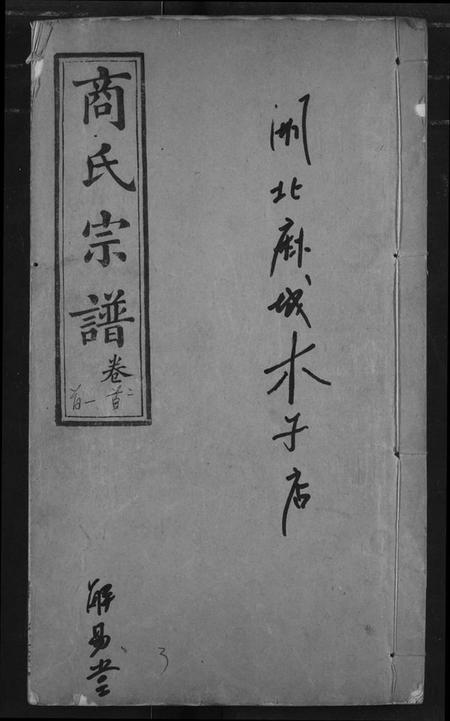 湖北麻城木子店
商氏宗譜卷
首二
首一
解易堂
3